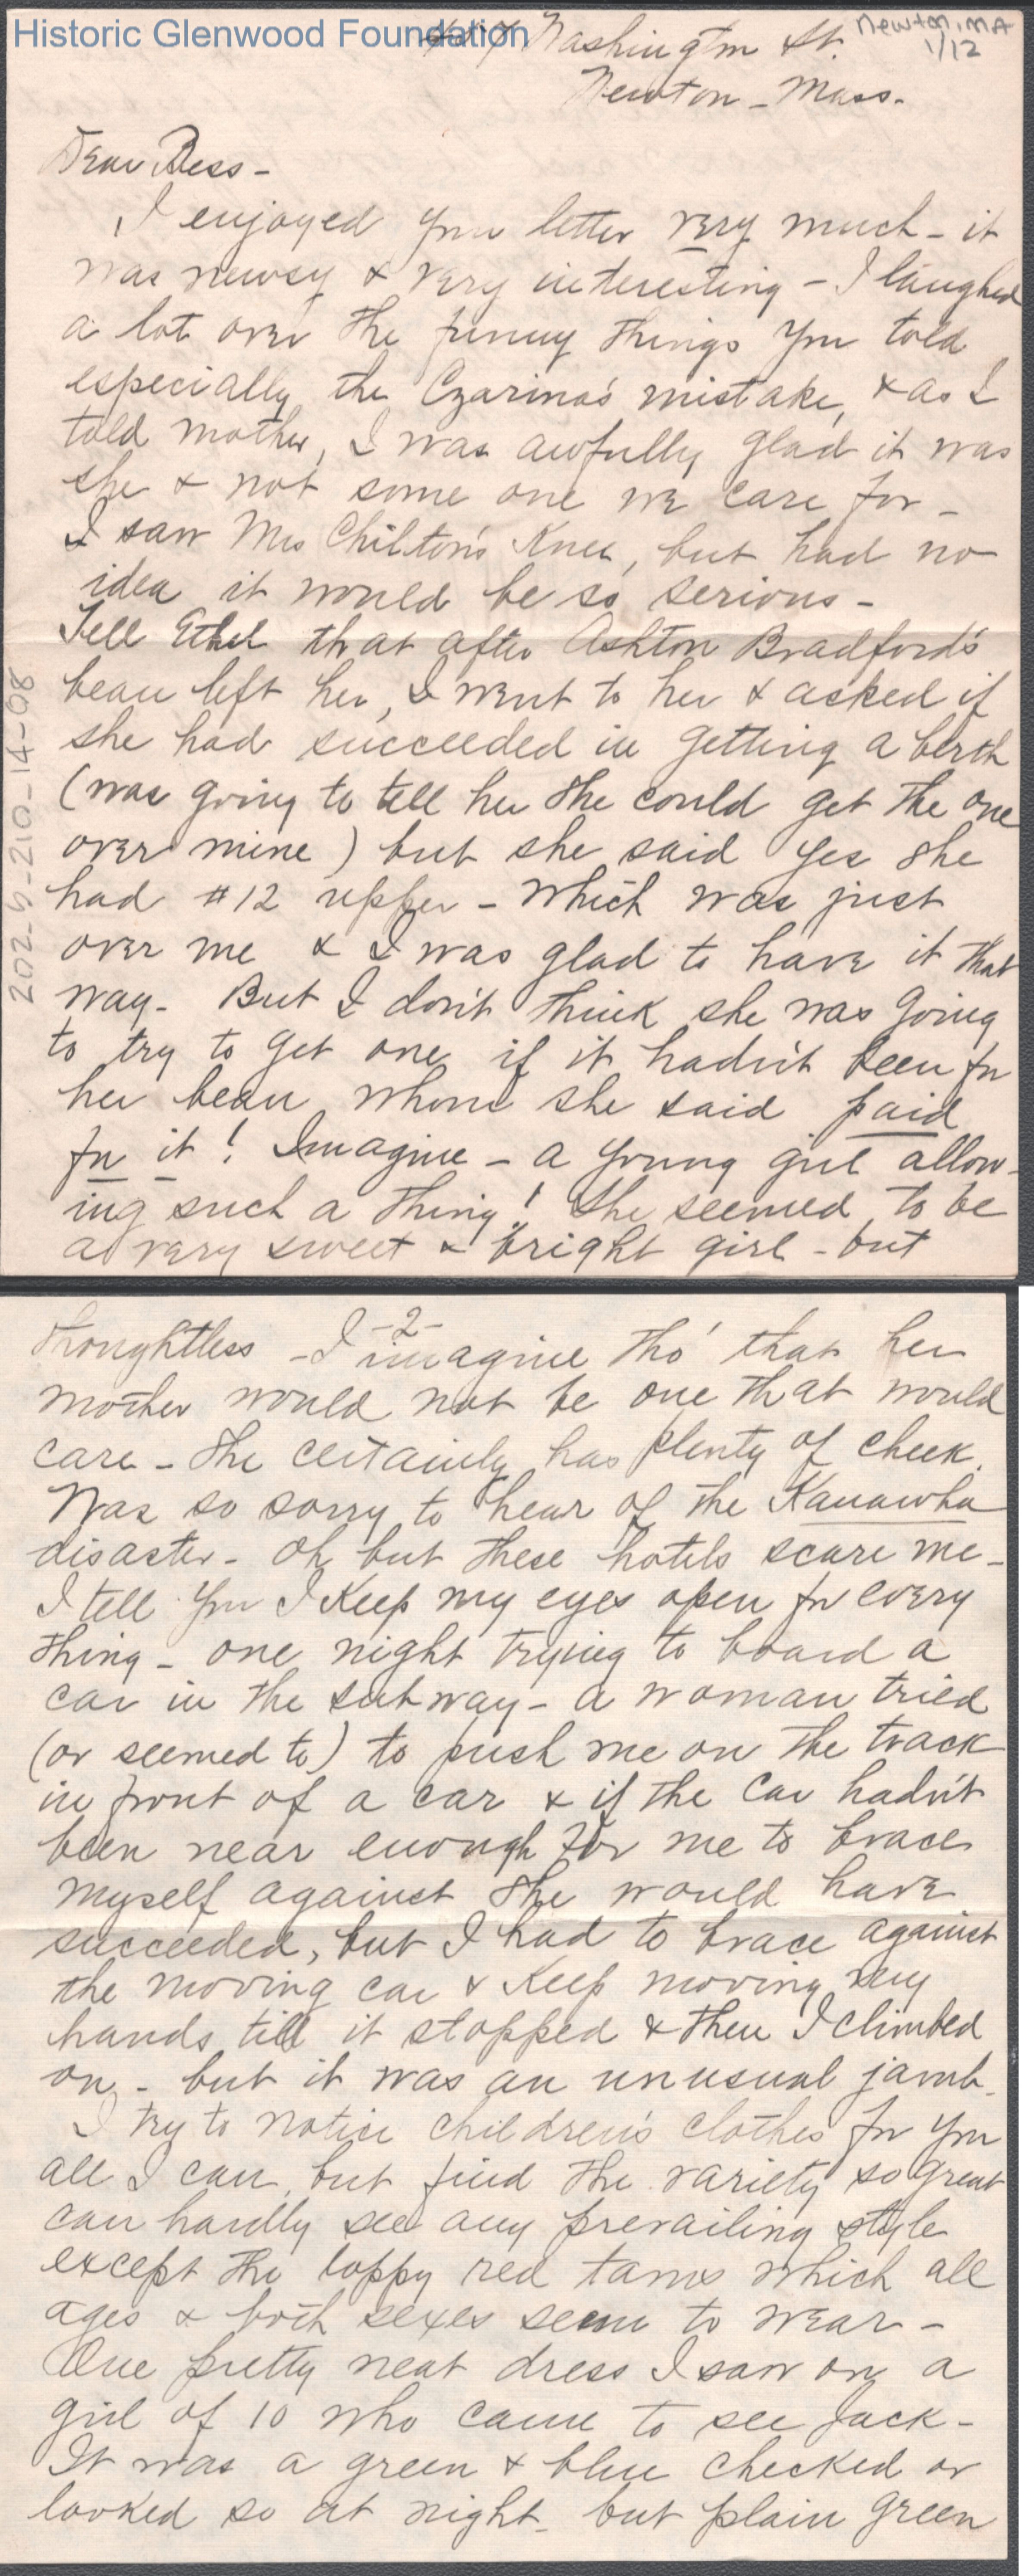 Historic Glenwood Foundation
Washington St.
Newton, MA
1/12
Newton - Mass.
Dear Bess -
I enjoyed your letter very much - it
was newsy & very interesting - I laughed
a lot over the funny things you told
especially the Czarina's mistake, & as I
told mother, I was awfully glad it was
she & not some one we care for -
I saw Mrs Chilton's Knee, but had no
idea it would be so serious -
Tell Ethel that after Ashton Bradford's
beau left her, I went to her & asked if
she had succeeded in getting a berth
(was going to tell her she could get the one
over mine) but she said yes she
had #12 upper - which was just
over me & I was glad to have it that
way - But I don't think she was going
to try to get one if it hadn't been for
her beau whom she said paid
for it! Imagine - a young girl allow-
ing such a thing! She seemed to be
a very sweet & bright girl - but
202-5-210-14-08
-2-
thoughtless - I imagine tho' that her
mother would not be one that would
care - she certainly has plenty of cheek.
Was so sorry to hear of the Kanawha
disaster - Oh but these hotels scare me -
I tell you I Keep my eyes open for every
thing - one night trying to board a
car in the subway - a woman tried
(or seemed to) to push me on the track
in front of a car & if the car hadn't
been near enough for me to brace
myself against she would have
succeeded, but I had to brace against
the moving car & Keep moving my
hands till it stopped & then I climbed
on - but it was an unusual jamb.
I try to notice children's clothes for you
all I can, but find the variety so great
can hardly see any prevailing style
except the loppy red tams which all
ages & both sexes seem to wear -
One pretty neat dress I saw on a
girl of 10 who came to see Jack -
It was a green & blue checked or
looked so at night - but plain green